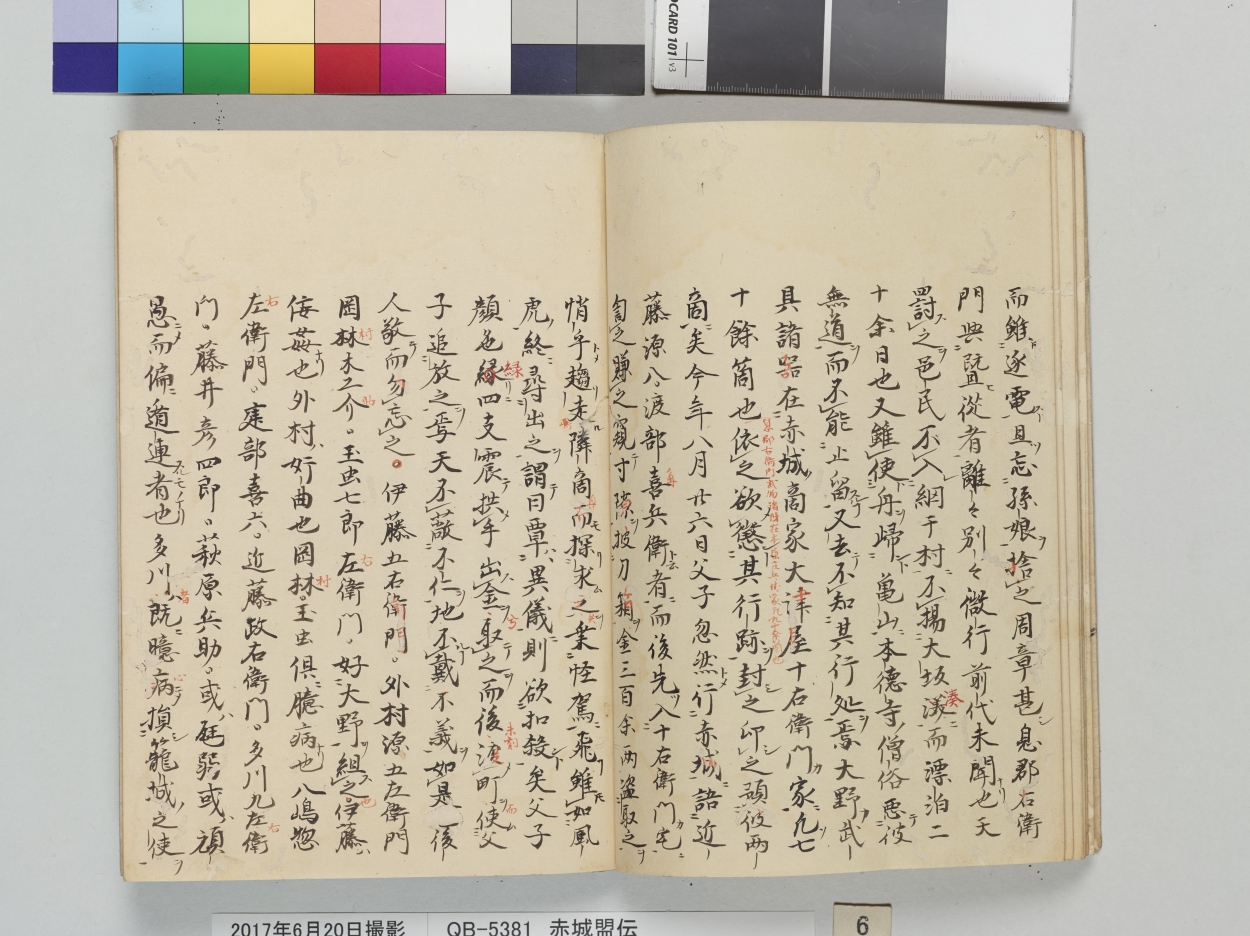 而雖逐電且忘孫娘捨之周章甚急郡右衛
門與既且從者離々別々微行前代未聞也天
罸之邑民不入綱干村不揚大坂湊而漂泊二
十余日也又雖使舟帰亀山本徳寺僧俗悪彼
無道而不能止留又去不知其行処焉大野武
具諸器在赤城商家大津屋十右衛門家九七
十餘箇也依之欲懲其行跡封之印之頭彼両
商矣今年八月廿六日父子忽然行赤城語近
藤源八渡部喜兵衛者而後先入十右衛門宅
匐之賺之窺寸隙披刀箱金三百余両盗取之
悄乎趨走隣商而探求之乗怪駕飛雖如風
虎終尋出之謂曰覃異儀則欲扣殺矣父子
顔色縁四支震拱手出金取之而後渡町使父
子追放之焉天不蔽不仁地不戴不義如是後
人敬而勿忘之。伊藤五右衛門。外村源五左衛門
岡林木工介。玉虫七郎左衛門。好大野組之伊藤
侫姦也外村奸曲也岡林玉虫倶臆病也八嶋惣
左衛門。建部喜六。近藤政右衛門。多川九左衛
門。藤井彦四郎。萩原兵助。或尩弱或頑
愚而偏遁連者也多川既臆病損籠城之使
CARD 101 v3
2017年6月20日撮影 QB-5381 赤城盟伝
6